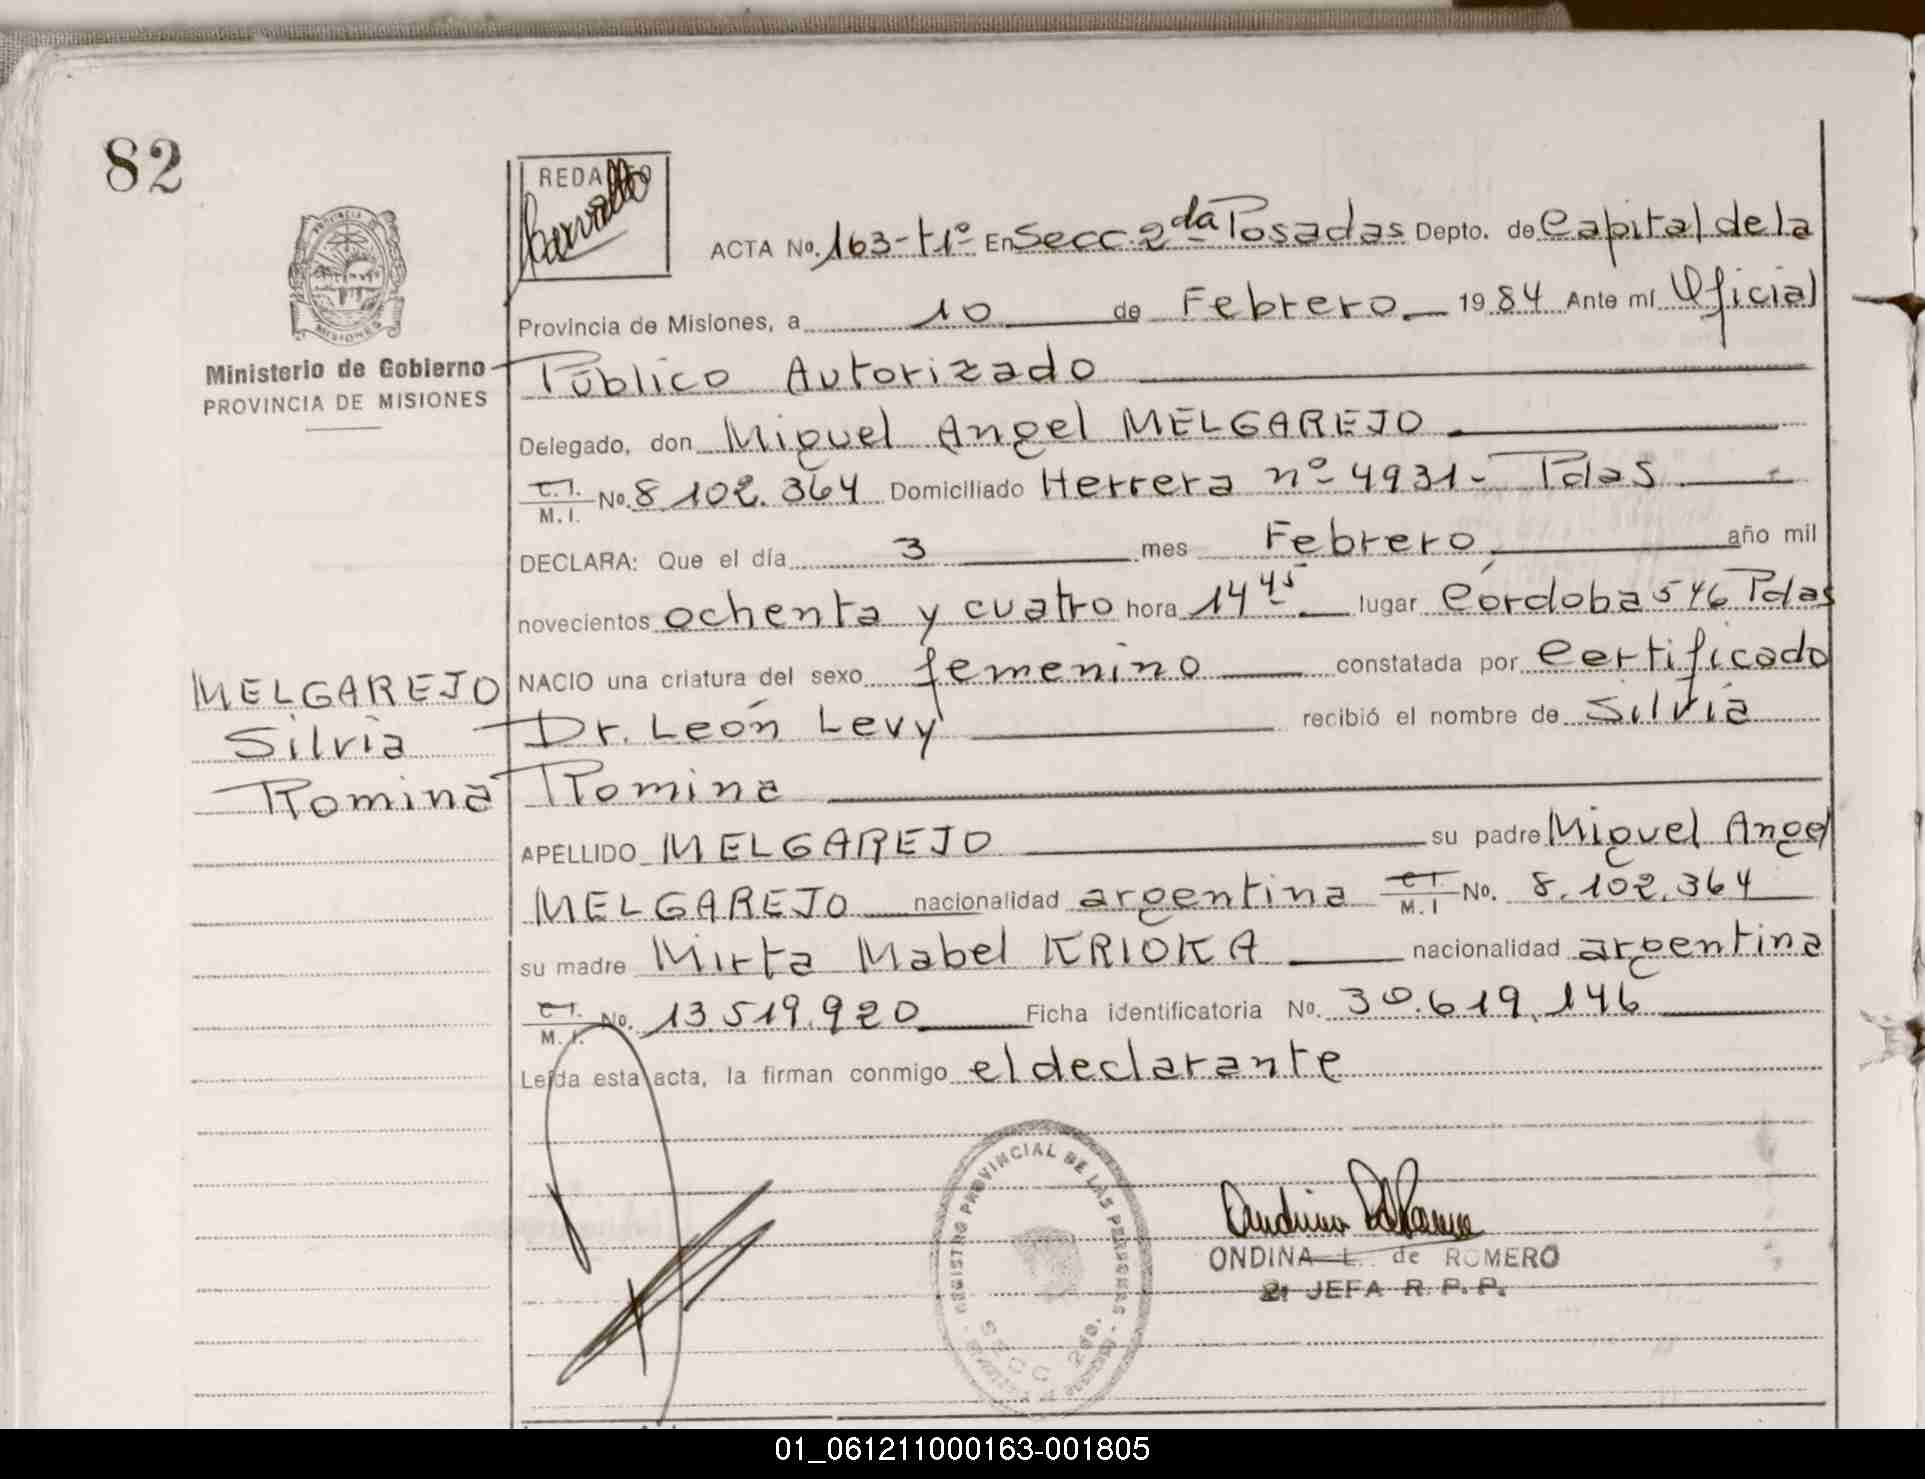 82
REDACTO
Carvallo
PROVINCIA DE
MISIONES
Ministerio de Gobierno
PROVINCIA DE MISIONES
ACTA No. 163-t1º En Secc. 2da Posadas Depto. de Capital de la
Provincia de Misiones, a 10 de Febrero 1984 Ante mí Oficial
Público Autorizado
Delegado, don Miguel Angel MELGAREJO
C.I. M.I. No. 8.102.364 Domiciliado Herrera nº 4931- Pdas
DECLARA: Que el día 3 mes Febrero año mil
novecientos ochenta y cuatro hora 14 45 lugar Córdoba 546 Pdas
NACIO una criatura del sexo femenino constatada por Certificado
Dr. León Levy recibió el nombre de Silvia
Romina
MELGAREJO
Silvia
Romina
APELLIDO MELGAREJO su padre Miguel Angel
MELGAREJO nacionalidad argentina C.I. M.I No. 8.102.364
su madre Mirta Mabel KRIOKA nacionalidad argentina
C.I. M.I. No. 13.519.920 Ficha identificatoria No. 30.619.146
Leída esta acta, la firman conmigo el declarante
REGISTRO PROVINCIAL DE LAS PERSONAS
SECC. 2da.
ONDINA L. de ROMERO
2ª JEFA R. P. P.
01_061211000163-001805